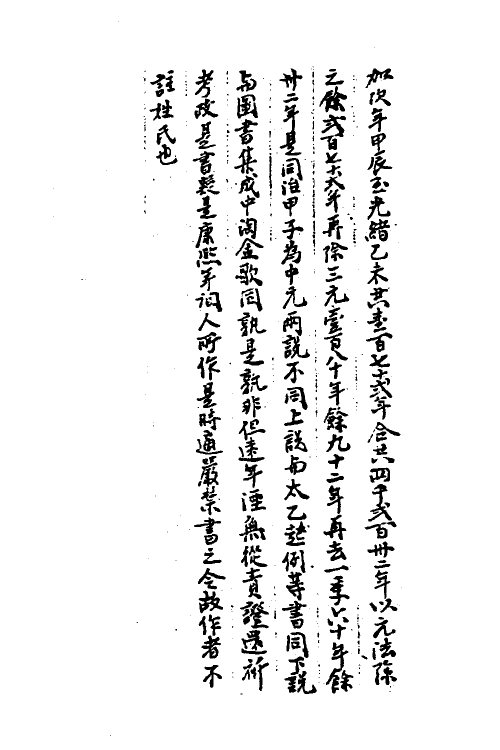 加次年甲辰至光緒乙未共壹百七十弍年合共四千弍百卅二年以元法除
之餘弍百七十弍年再除三元壹百八十年餘九十二年再去一季六十年餘
卅二年是同治甲子為中元兩說不同上說与太乙起例等書同下說
与圖書集成中淘金歌同孰是孰非但遠年湮無從責證還祈
考政是書疑是康熙年间人所作是時適嚴禁書之令故作者不
註姓氏也